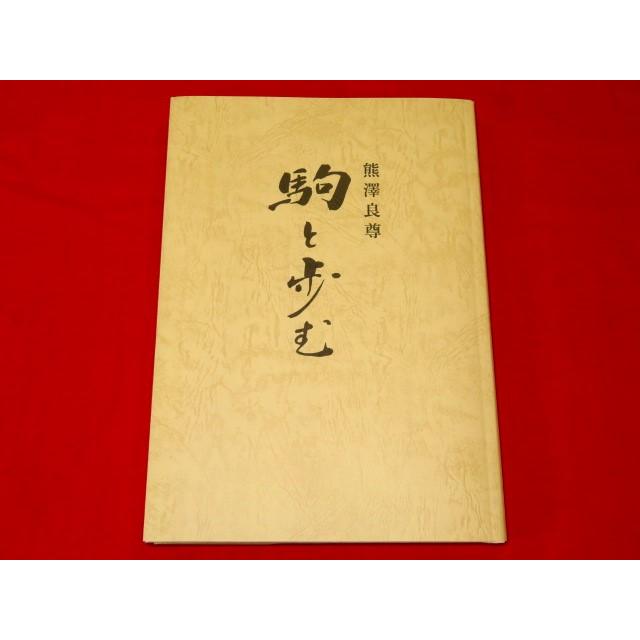 熊澤良尊
駒と歩む